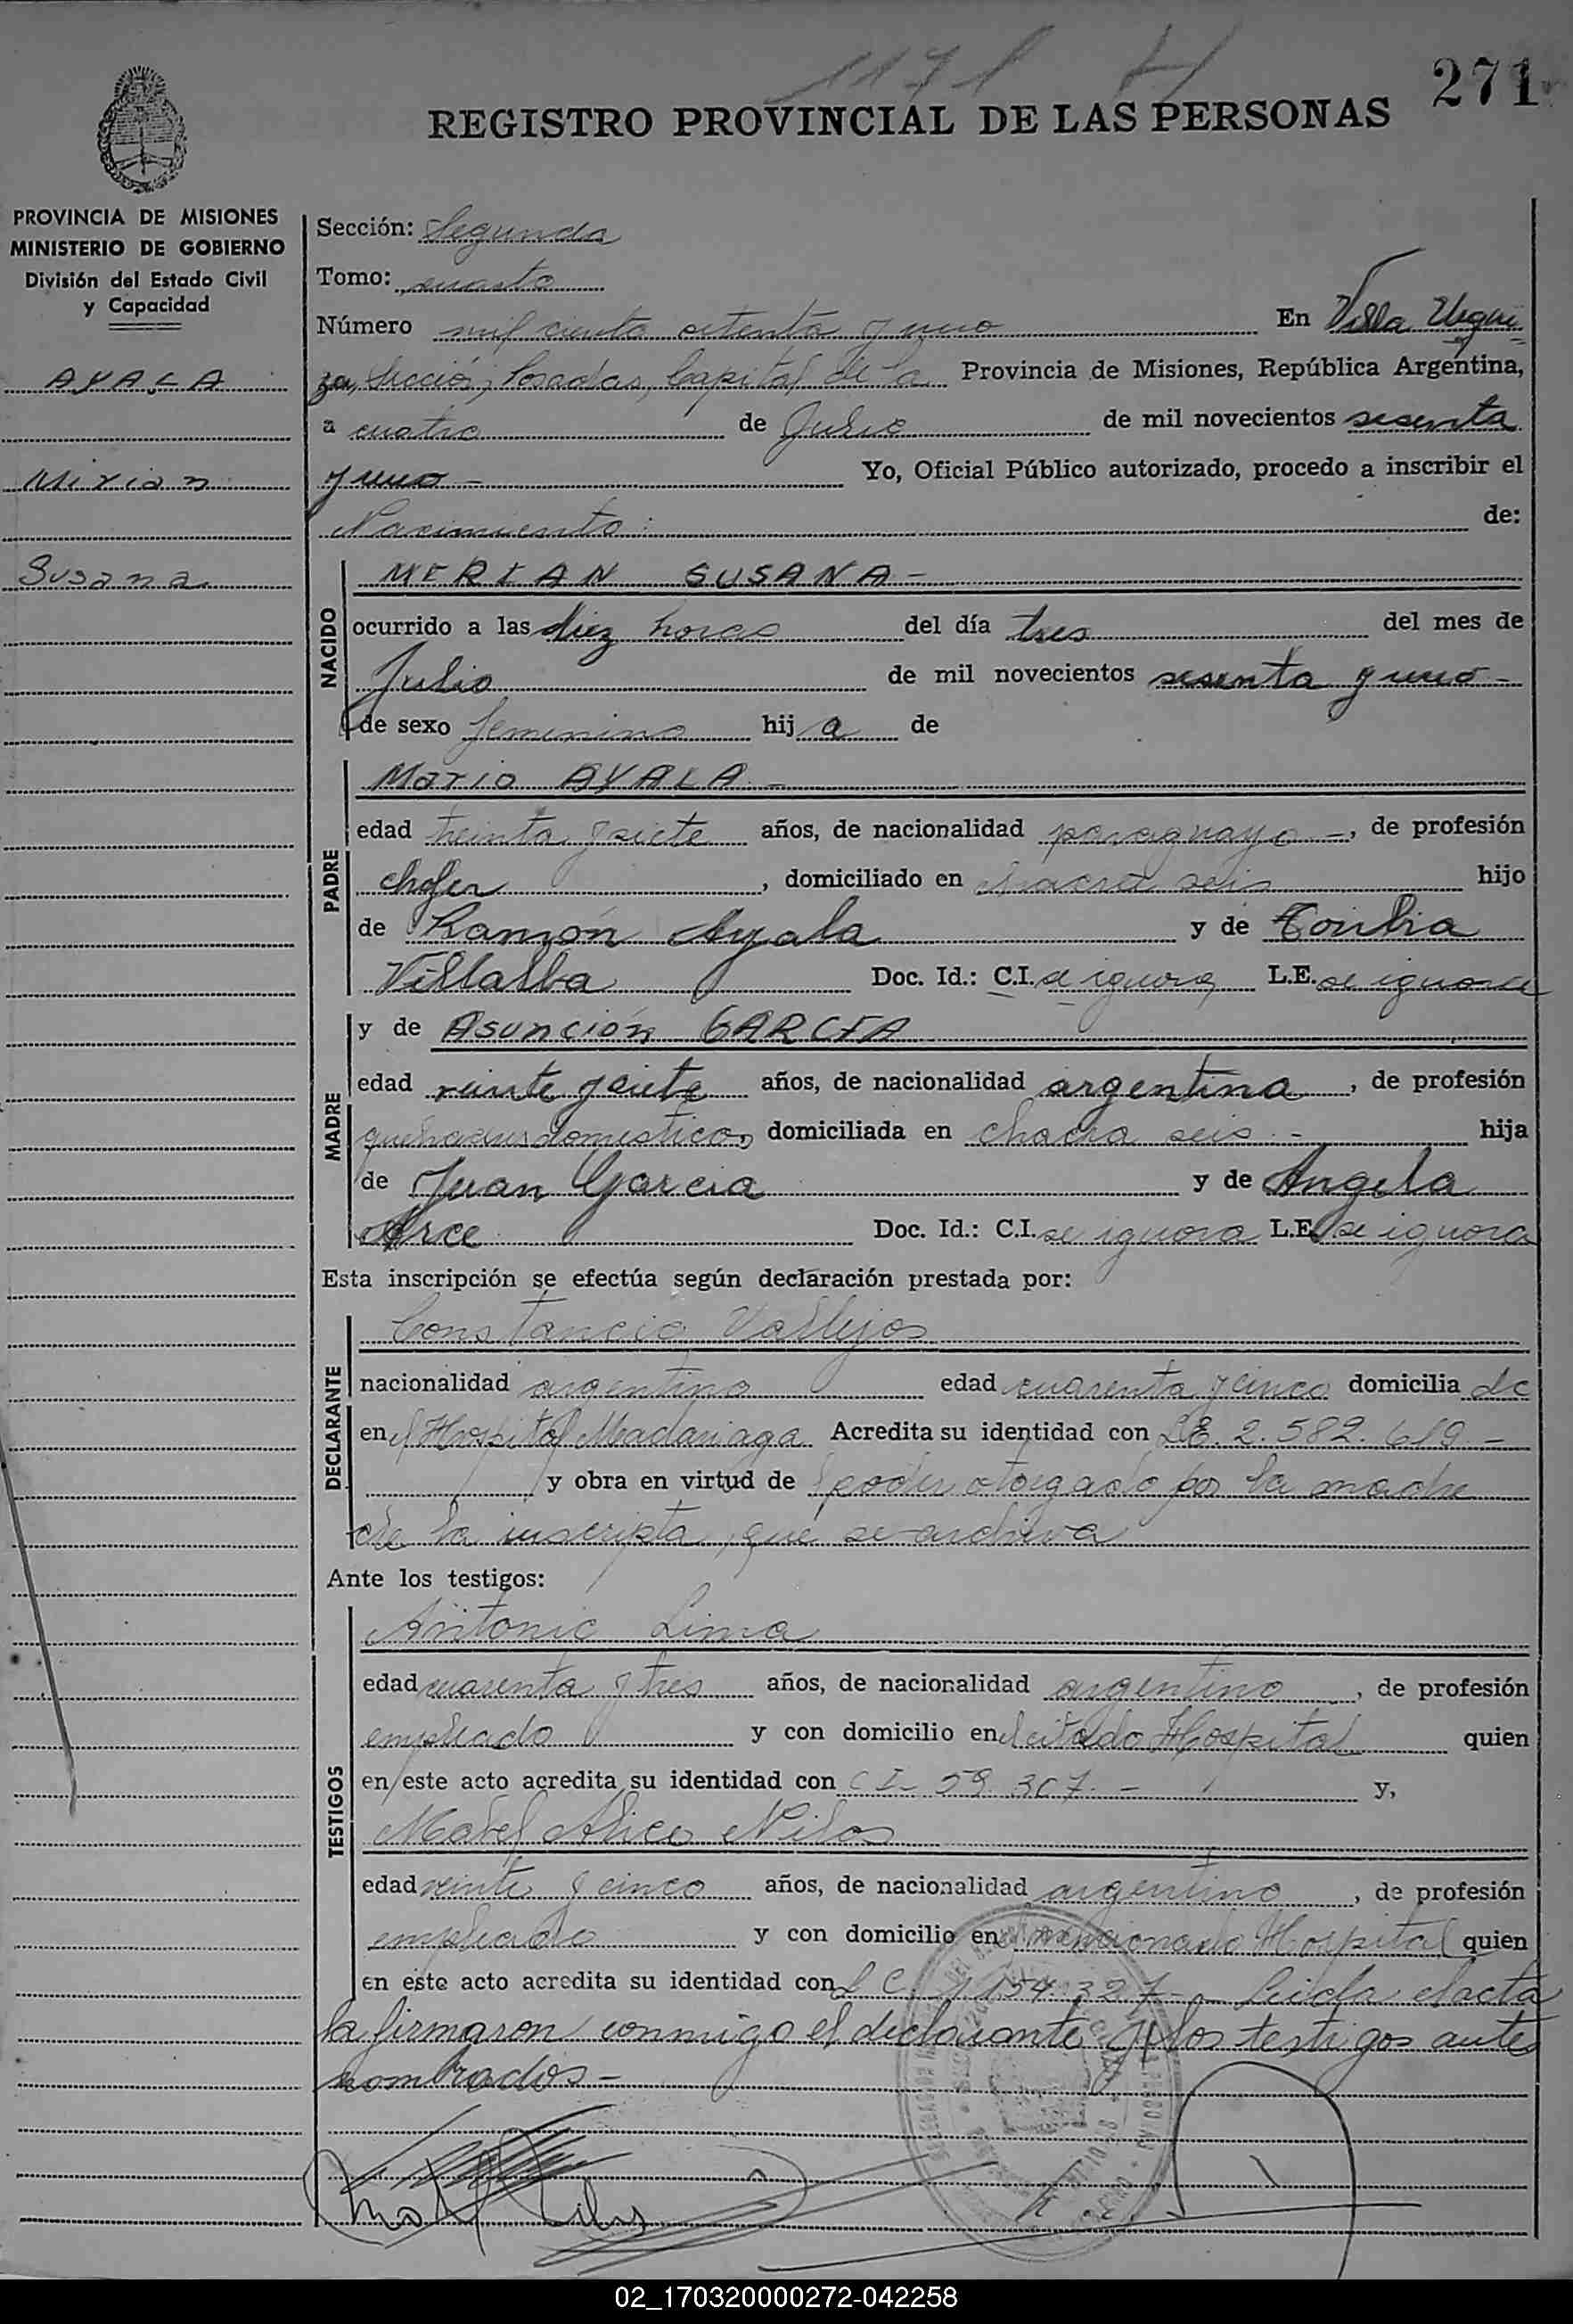 1171 H
271
REGISTRO PROVINCIAL DE LAS PERSONAS
PROVINCIA DE MISIONES
MINISTERIO DE GOBIERNO
División del Estado Civil
y Capacidad
AYALA
Mirian
Susana
Sección: Segunda
Tomo: cuarto
Número mil ciento setenta y uno En Villa Urqui
za, Sección, Posadas, Capital de la Provincia de Misiones, República Argentina,
a cuatro de Julio de mil novecientos sesenta
y uno - Yo, Oficial Público autorizado, procedo a inscribir el
Nacimiento: de:
NACIDO
MERIAN SUSANA -
ocurrido a las diez horas del día tres del mes de
Julio de mil novecientos sesenta y uno -
de sexo femenino hij a de
PADRE
Mario AYALA -
edad treinta y siete años, de nacionalidad paraguayo -, de profesión
chofer, domiciliado en chacra seis hijo
de Ramón Ayala y de Toribia
Villalba Doc. Id.: C.I. se ignora L.E. se ignora
MADRE
y de Asunción GARCIA
edad veinte y siete años, de nacionalidad argentina, de profesión
quehaceres domesticos, domiciliada en chacra seis - hija
de Juan Garcia y de Angela
Arce Doc. Id.: C.I. se ignora L.E. se ignora
Esta inscripción se efectúa según declaración prestada por:
DECLARANTE
Constancio Vallejos
nacionalidad argentino edad cuarenta y cinco domicilia do
en el Hospital Madariaga Acredita su identidad con L.E. 2.582.619 -
y obra en virtud de poder otorgado por la madre
de la inscripta, que se archiva
Ante los testigos:
TESTIGOS
Antonio Lima
edad cuarenta y tres años, de nacionalidad argentino, de profesión
empleado y con domicilio en el citado Hospital quien
en este acto acredita su identidad con C I - 59.307. - y,
Mabel Alice Nilos
edad veinte y cinco años, de nacionalidad argentino, de profesión
empleado y con domicilio en mencionado Hospital quien
en este acto acredita su identidad con L C. 154.327 - Leida el acta
la firmaron conmigo el declarante y los testigos antes
nombrados -
02_170320000272-042258